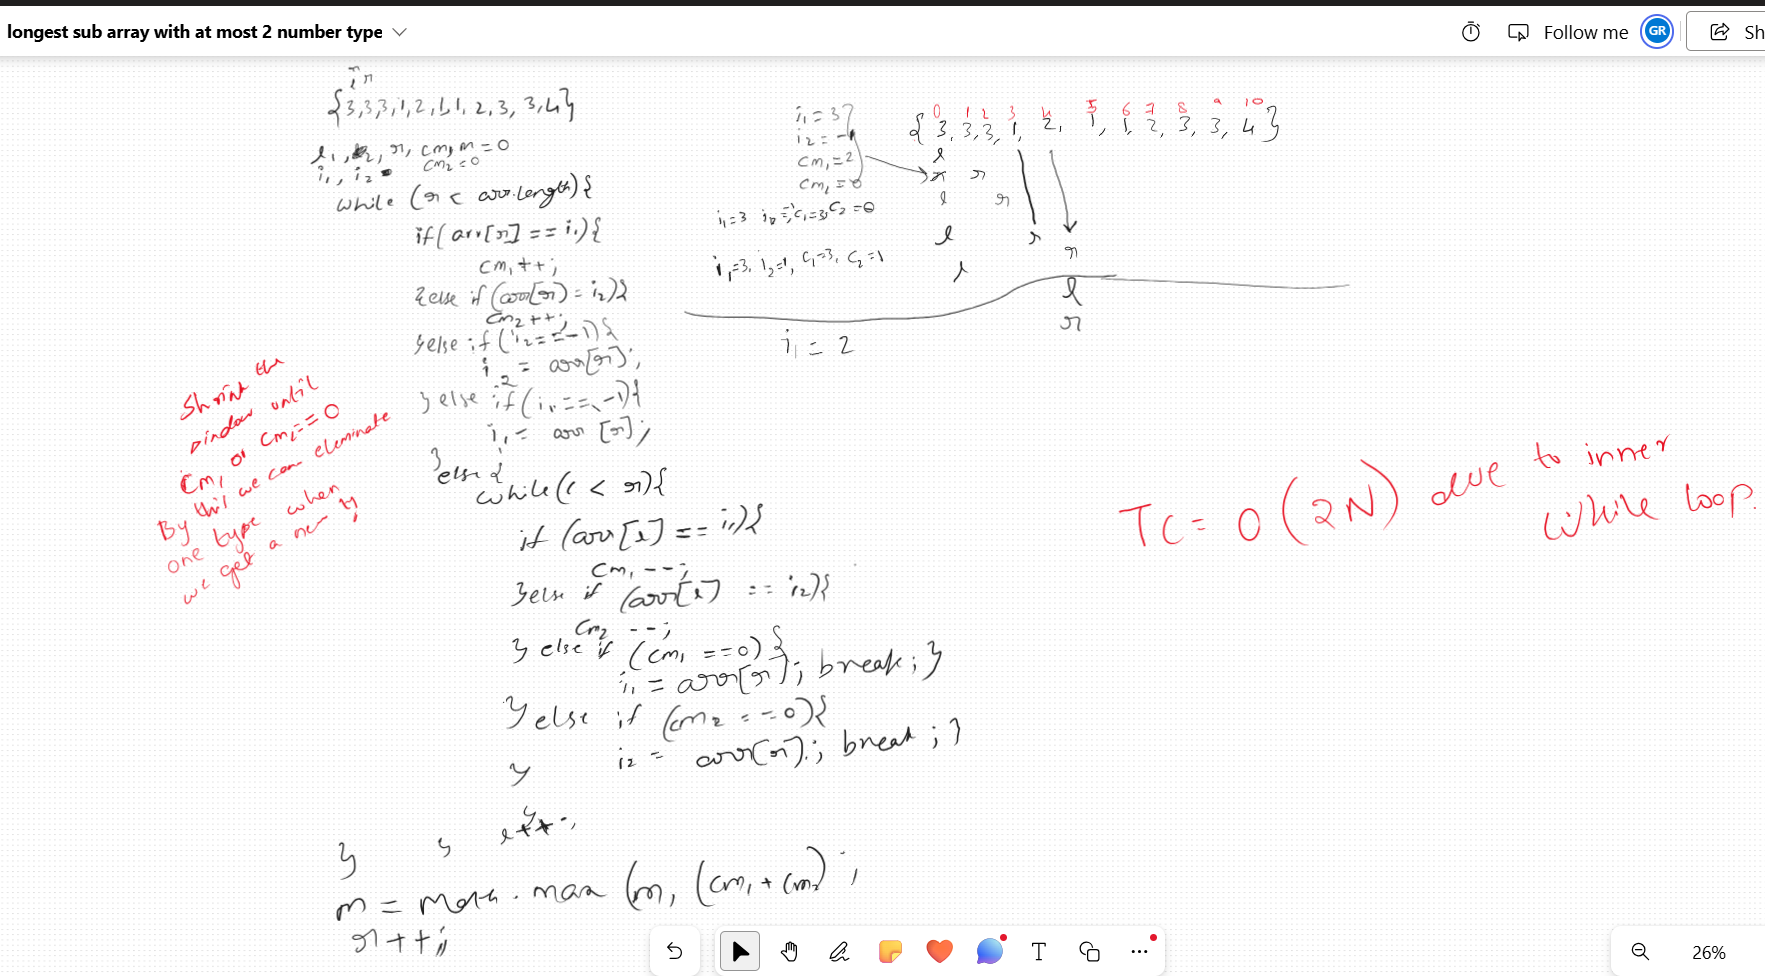 longest sub array with at most 2 number type
Follow me
GR
Sh
l r
{3,3,3,1,2,1,1,2,3,3,4}
l1, r, cm1, m = 0
i1, i2 cm2 = 0
while (r < arr.length){
if(arr[r] == i1){
cm1++;
}else if(arr[r] = i2)}
cm2++;
}else if(i2==-1){
i2 = arr[r];
}else if(i1==-1){
i1 = arr[r];
}else {
while(l < r){
if (arr[l] == i1){
cm1--;
}else if (arr[l] == i2){
cm2--;
}else if (cm1 ==0){
i1 = arr[r]; break;}
}else if (cm2 ==0){
i2 = arr[r]; break;}
}
l++;
}
}
m = Math.max(m, (cm1+cm2);
r++;
Shrink the
window until
cm1 or cm2==0
By this we can eleminate
one type when
we get a new
i1=3
i2=-1
cm1=2
cm1=0
0 1 2 3 4 5 6 7 8 9 10
{3,3,3,1,2,1,1,2,3,3,4}
l
r r
l r
i1=3 i2=-1, c1=3, c2=0
l r
i1=3, i2=1, c1=3, c2=1
r
l
l
r
i1 = 2
TC = O(2N) due to inner
while loop.
T
26%